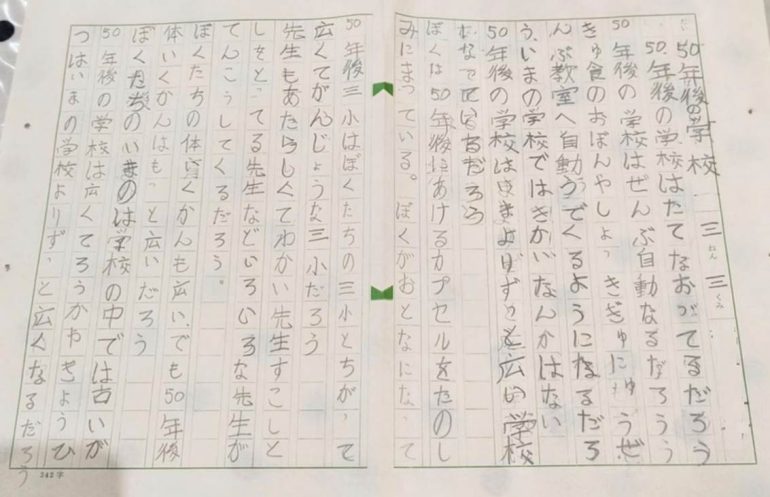 だい 50年後の学校 三ねん 三くみ
50年後の学校はたてなおってるだろう
50年後の学校はぜんぶ自動なるだろうう
きゅ食のおぼんやしょっきぎゅにゅうぜ
んぶ教室へ自動うでくるようになるだろ
う、いまの学校ではきかいなんかはない
50年後の学校はいまよりずっと広い学校
になっているだろう
ぼくは50年後にあけるカプセルをたのし
みにまっている。ぼくがおとなになって
50年後三小はぼくたちの三小とちがって
広くてがんじょうな三小だろう
先生もあたらしくてわかい先生すこしと
しをとってる先生などいろいろな先生が
てんこうしてくるだろう。
ぼくたちの体育くかんも広い、でも50年後
体いくかんはもっと広いだろう
ぼくたちのいまのは学校の中では古いが
50年後の学校は広くてろうかやきょうひ
つはいまの学校よりずっと広くなるだろう
342字